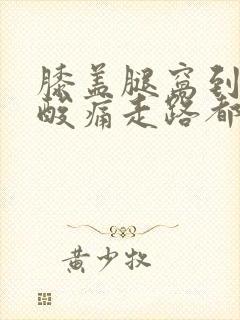 膝盖腿窝到
酸痛走路都
黄少牧